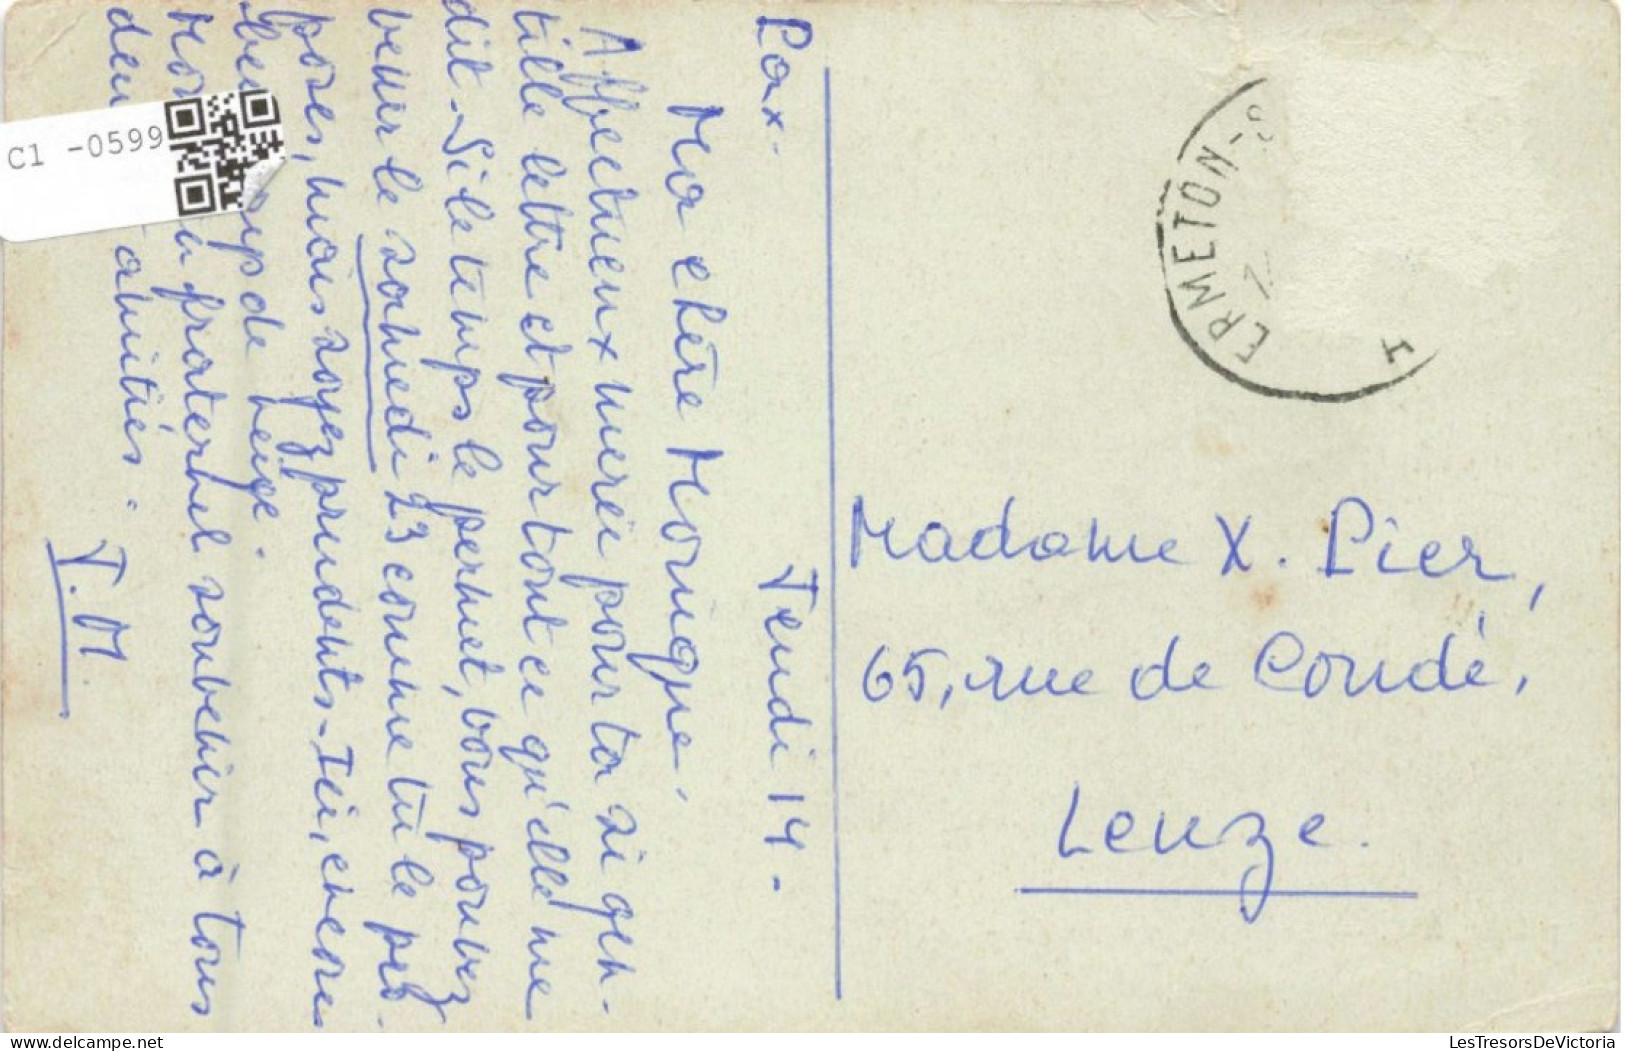 Pax. Jeudi 14.
Ma chère Monique,
Affectueux merci pour ta si gen-
tille lettre et pour tout ce qu'elle me
dit. Si le temps le permet, vous pouvez
venir le samedi 23 comme tu le pro-
poses, mais soyez prudents. Ici, encore
de neige.
fraternel souvenir à tous
amitiés.
J. M.
Madame X. Pier,
65, rue de Condé,
Leuze.
ERMETON-S
C1 -0599
www.delcampe.net
LesTresorsDeVictoria